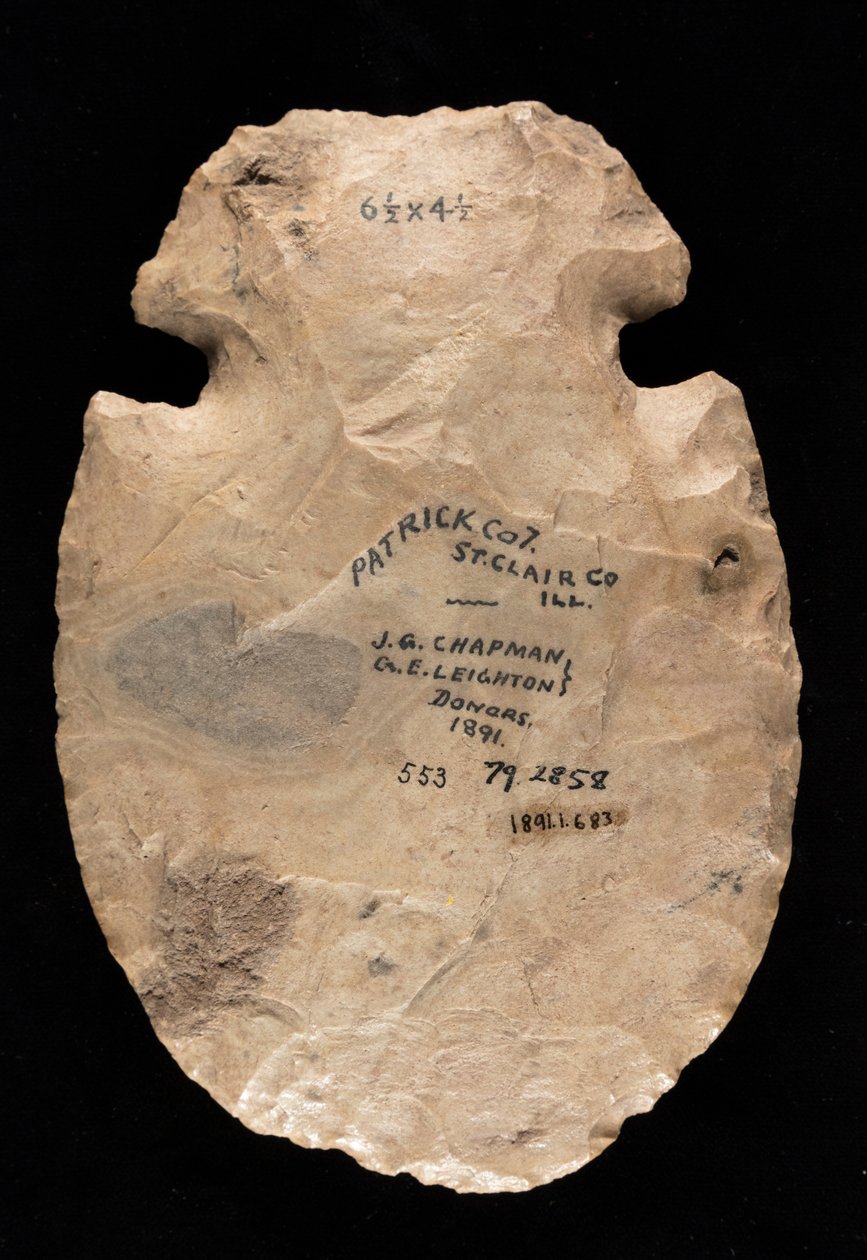 6½ x 4½
PATRICK COT.
ST. CLAIR CO
ILL.
J. G. CHAPMAN, }
G. E. LEIGHTON }
DONORS,
1891.
553 79.2858
1891.1.683